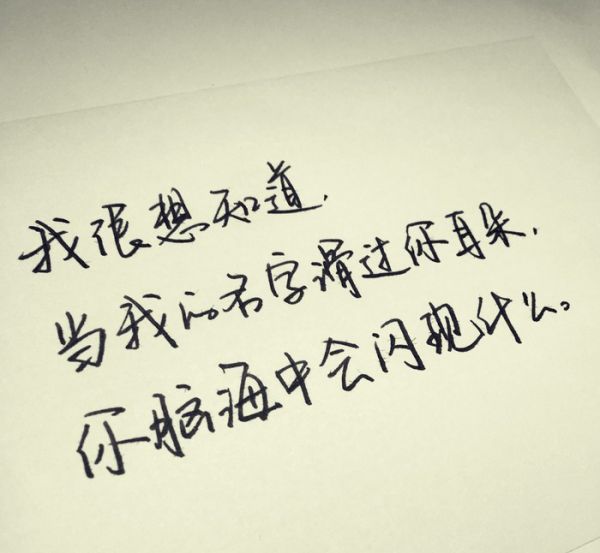 我很想知道,
当我的名字滑过你耳朵,
你脑海中会闪现什么。